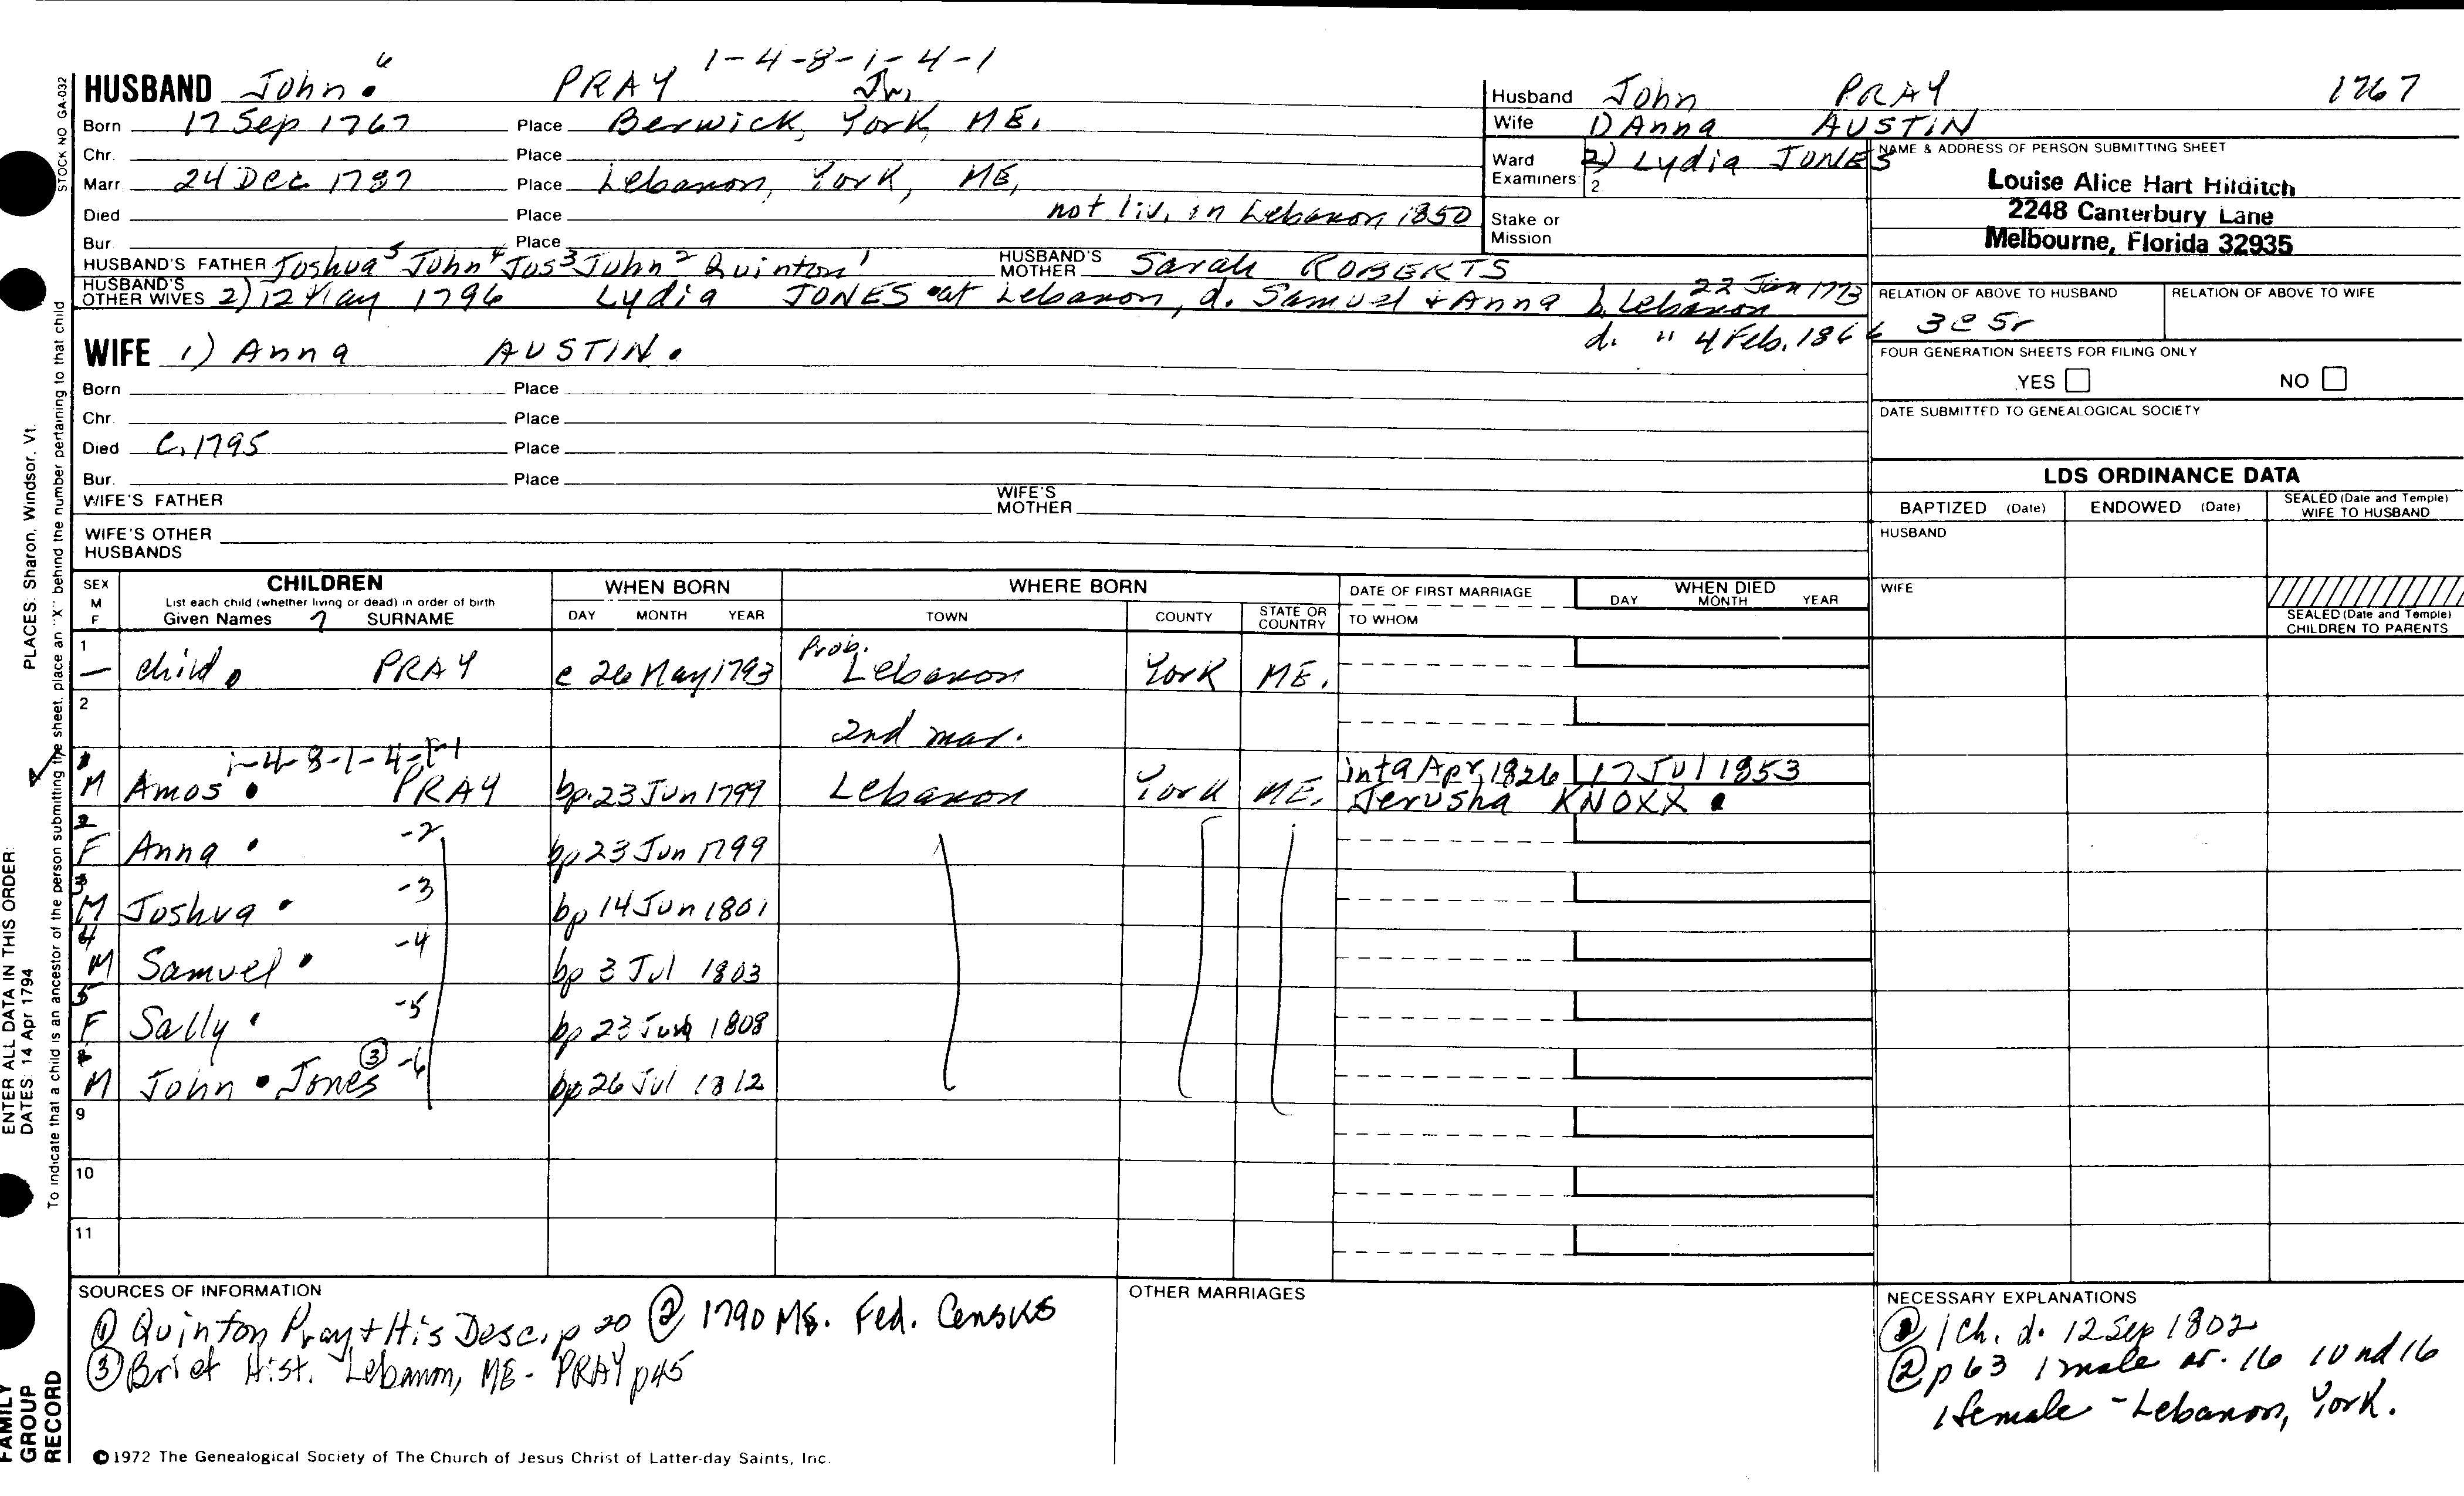 1-4-8-1-4-1
HUSBAND John 6 PRAY Jr.
Born 17 Sep 1767 Place Berwick, York, ME.
Chr. Place
Marr. 24 Dec 1787 Place Lebanon, York, ME,
Died Place not liv. in Lebanon 1850
Bur. Place
HUSBAND'S FATHER Joshua5 John4 Jos3 John2 Quinton1 HUSBAND'S MOTHER Sarah ROBERTS
HUSBAND'S OTHER WIVES 2) 12 May 1796 Lydia JONES at Lebanon, d. Samuel + Anna b. Lebanon 22 Jan 1773
d. " 4 Feb. 1866
WIFE 1) Anna AUSTIN.
Born Place
Chr. Place
Died C. 1795 Place
Bur. Place
WIFE'S FATHER WIFE'S MOTHER
WIFE'S OTHER HUSBANDS
Husband John PRAY 1767
Wife 1) Anna AUSTIN
2) Lydia JONES
Ward
Examiners: 2.
Stake or
Mission
NAME & ADDRESS OF PERSON SUBMITTING SHEET
Louise Alice Hart Hilditch
2248 Canterbury Lane
Melbourne, Florida 32935
RELATION OF ABOVE TO HUSBAND RELATION OF ABOVE TO WIFE
3c 5r
FOUR GENERATION SHEETS FOR FILING ONLY
YES NO
DATE SUBMITTED TO GENEALOGICAL SOCIETY
LDS ORDINANCE DATA
BAPTIZED (Date) ENDOWED (Date) SEALED (Date and Temple) WIFE TO HUSBAND
HUSBAND
WIFE
SEALED (Date and Temple)
CHILDREN TO PARENTS
SEX M F CHILDREN WHEN BORN WHERE BORN DATE OF FIRST MARRIAGE WHEN DIED
List each child (whether living or dead) in order of birth
Given Names SURNAME DAY MONTH YEAR TOWN COUNTY STATE OR COUNTRY TO WHOM DAY MONTH YEAR
1 — child PRAY c 26 May 1793 Prob. Lebanon York ME.
2
2nd mar.
1-4-8-1-4-1-1
1 M Amos PRAY bp. 23 Jun 1799 Lebanon York ME. int 9 Apr, 1826 17 Jul 1853
Jerusha KNOXX
2 F Anna -2 bp 23 Jun 1799
3 M Joshua -3 bp 14 Jun 1801
4 M Samuel -4 bp 3 Jul 1803
5 F Sally -5 bp 23 1808
M John Jones ③ -6 bp 26 Jul 1812
9
10
11
SOURCES OF INFORMATION
① Quinton Pray + His Desc. p 20 ② 1790 ME. Fed. Census
③ Brief Hist. Lebanon, ME - PRAY p45
OTHER MARRIAGES
NECESSARY EXPLANATIONS
① 1 Ch. d. 12 Sep 1802
② p 63 1 male ov. 16 1 und 16
1 female - Lebanon, York.
©1972 The Genealogical Society of The Church of Jesus Christ of Latter-day Saints, Inc.
STOCK NO GA-032
To indicate that a child is an ancestor of the person submitting the sheet, place an "X" behind the number pertaining to that child
PLACES: Sharon, Windsor, Vt.
ENTER ALL DATA IN THIS ORDER:
DATES: 14 Apr 1794
FAMILY
GROUP
RECORD